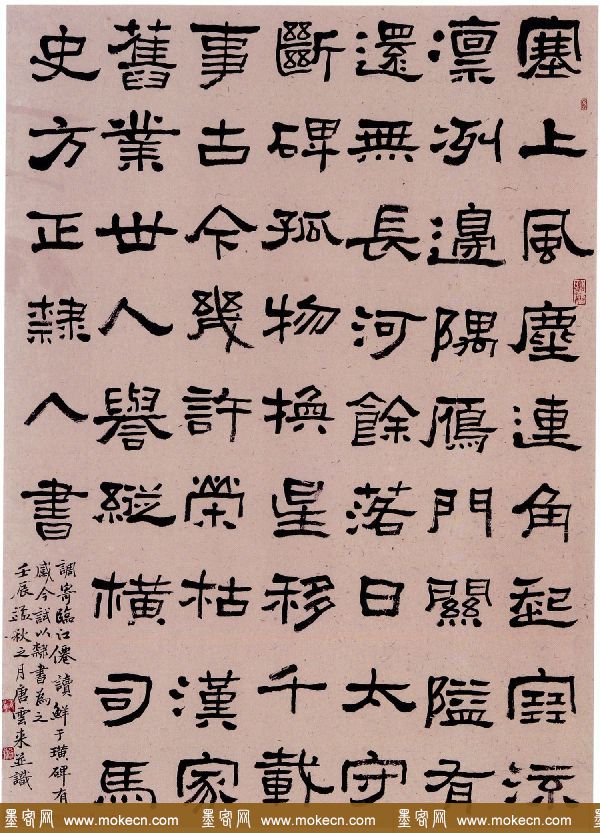 塞上風塵連角起流
凛冽邊隅鴈門關隘有
還無長河餘落日太守
斷碑孤物換星移千載
事古今幾許榮枯漢家
舊業世人譽縱橫司馬
史方正隸人書
調寄臨江僊讀鮮于璜碑有
感今試以隸書為之
壬辰孟秋之月唐雲来並識
墨客网 www.mokecn.com 墨客网 www.mokecn.com 墨客网 www.mokecn.com